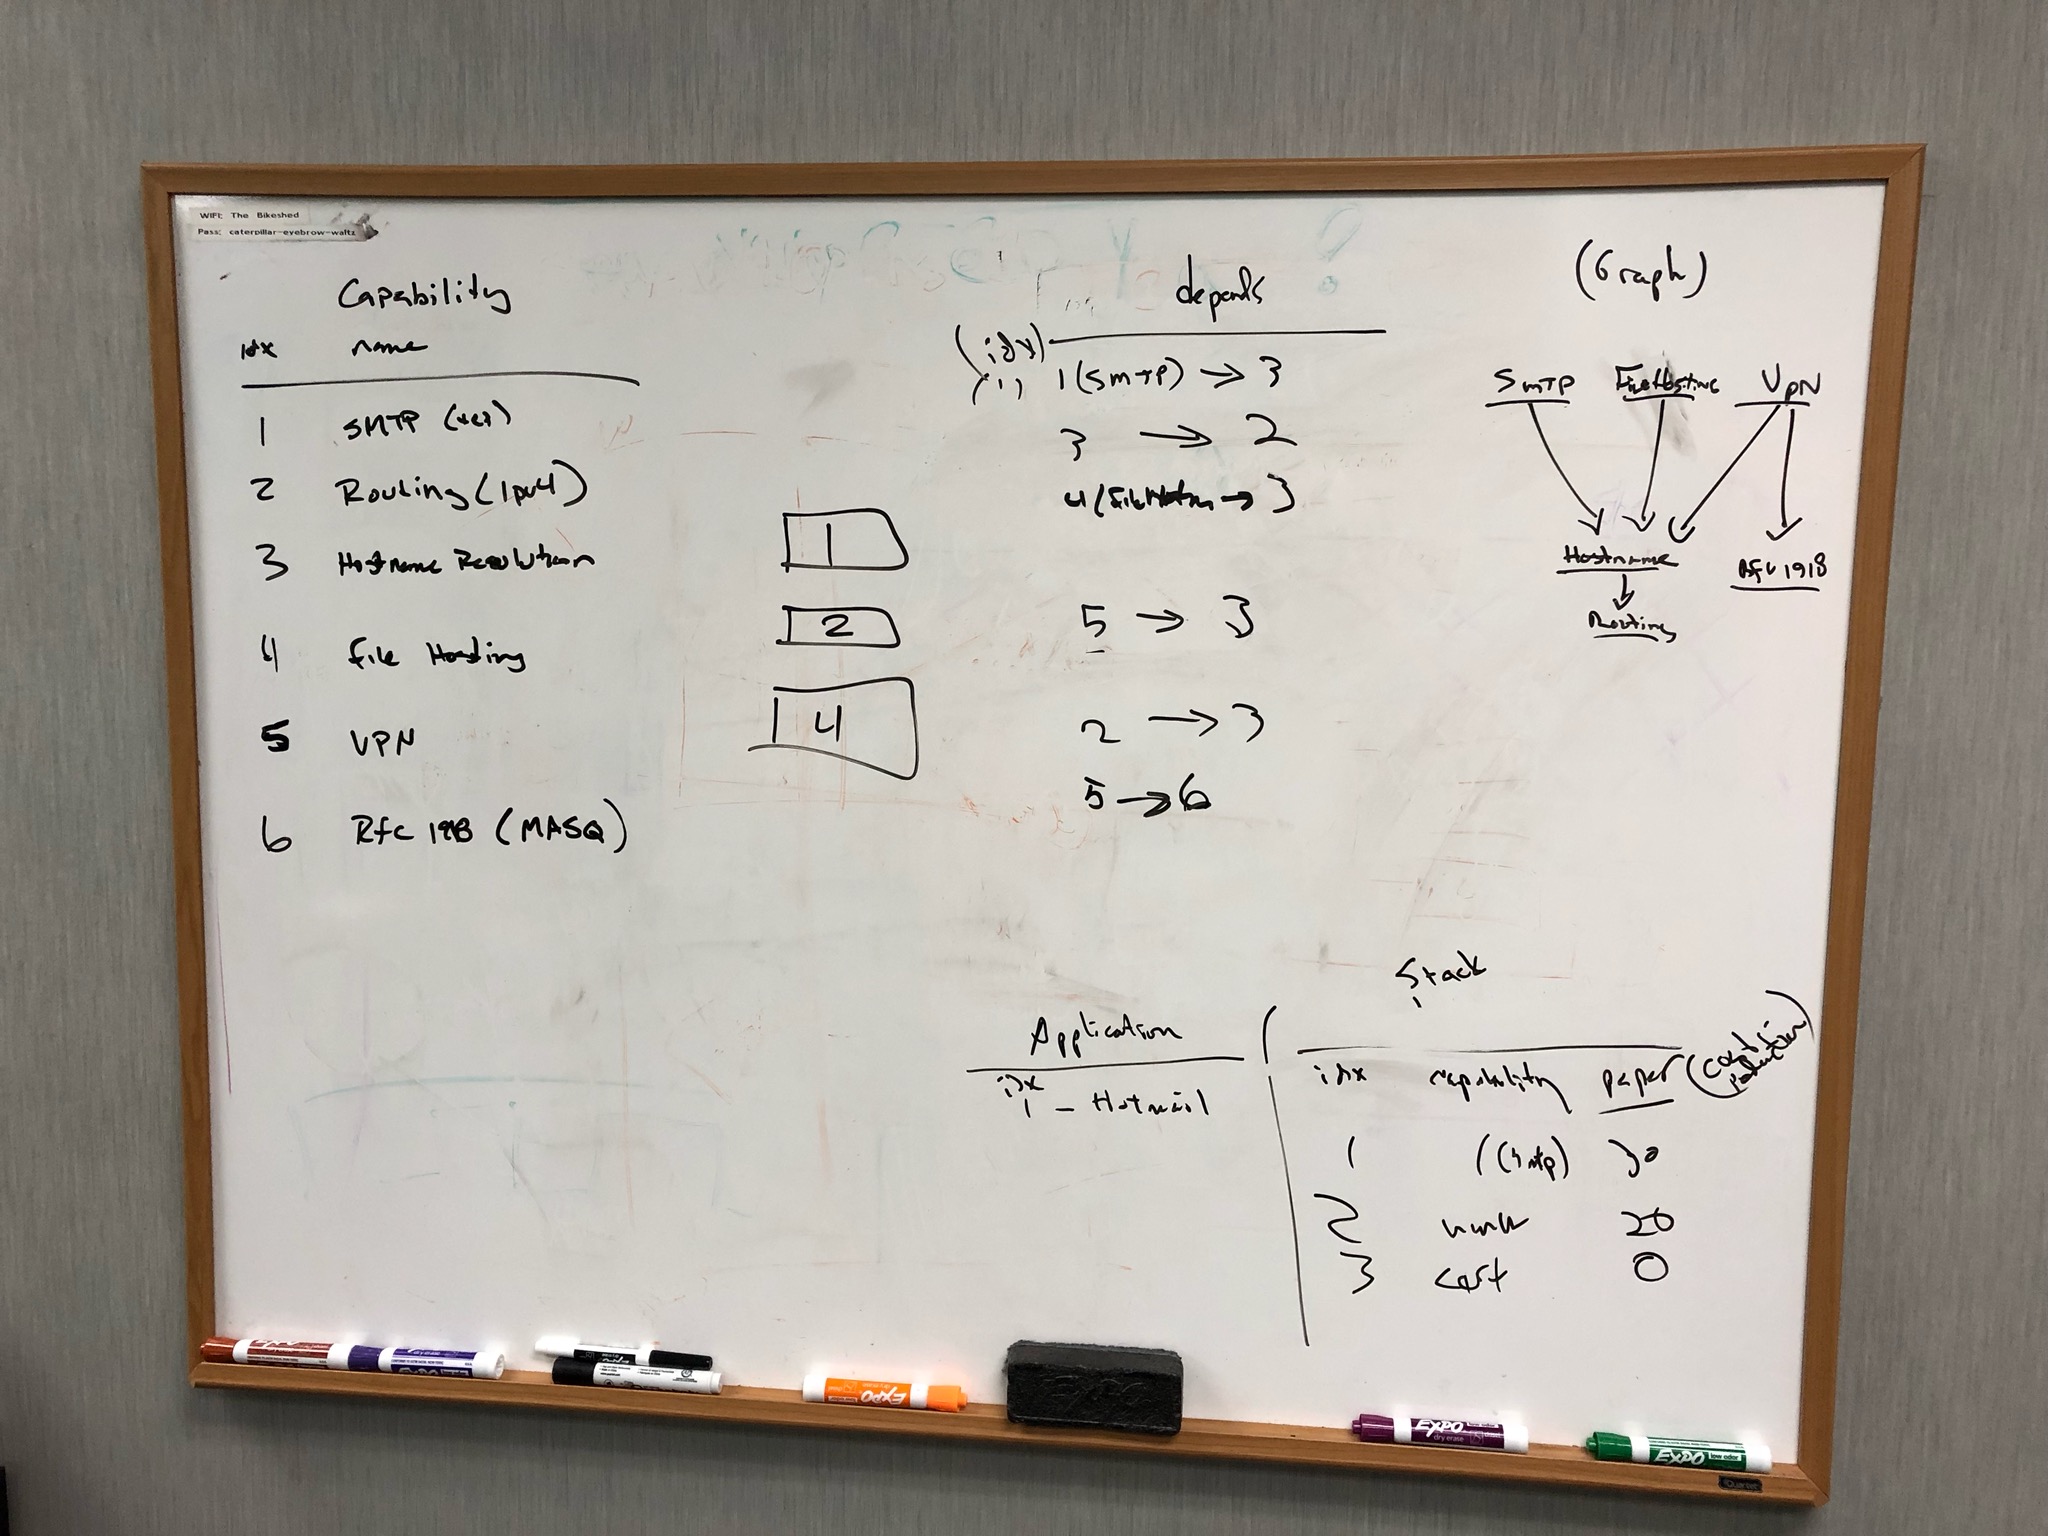 WIFI: The Bikeshed
Pass: caterpillar-eyebrow-waltz
Capability
idx name
1 SMTP (tcp)
2 Routing (ipv4)
3 Hostname Resolution
4 File Hosting
5 VPN
6 Rfc 1918 (MASQ)
1
2
4
depends
(idx)
1 (SMTP) → 3
3 → 2
4 (File Hosting → 3
5 → 3
2 → 3
5 → 6
(Graph)
SMTP File Hosting VPN
Hostname Rfc 1918
Routing
Application
idx
1 - Hotmail
Stack
idx capability paper
1 1 (smtp) 30
2 20
3 cost 0
EXPO
EXPO
EXPO
EXPO low odor
Quartet